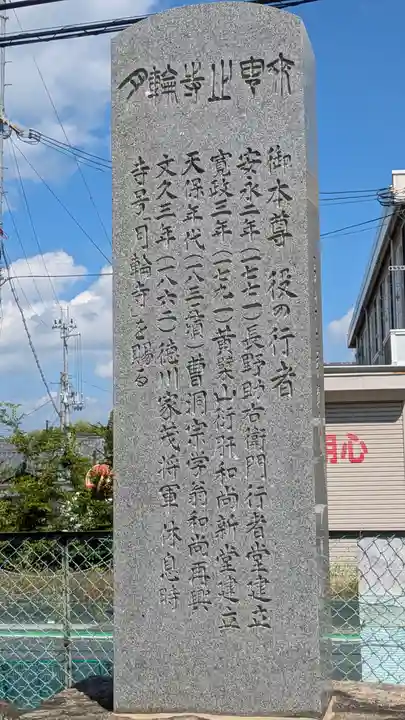 月輪寺
御本尊 役の行者
安永二年(一七七一)長野助右衛門行者堂建立
寛政三年(一七九一)黄檗山衍 和尚新堂建立
天保年代(一八三 頃)曹洞宗学翁和尚再興
文久三年(一八六二)徳川家茂将軍休息時
寺号「月輪寺」を賜る
用心